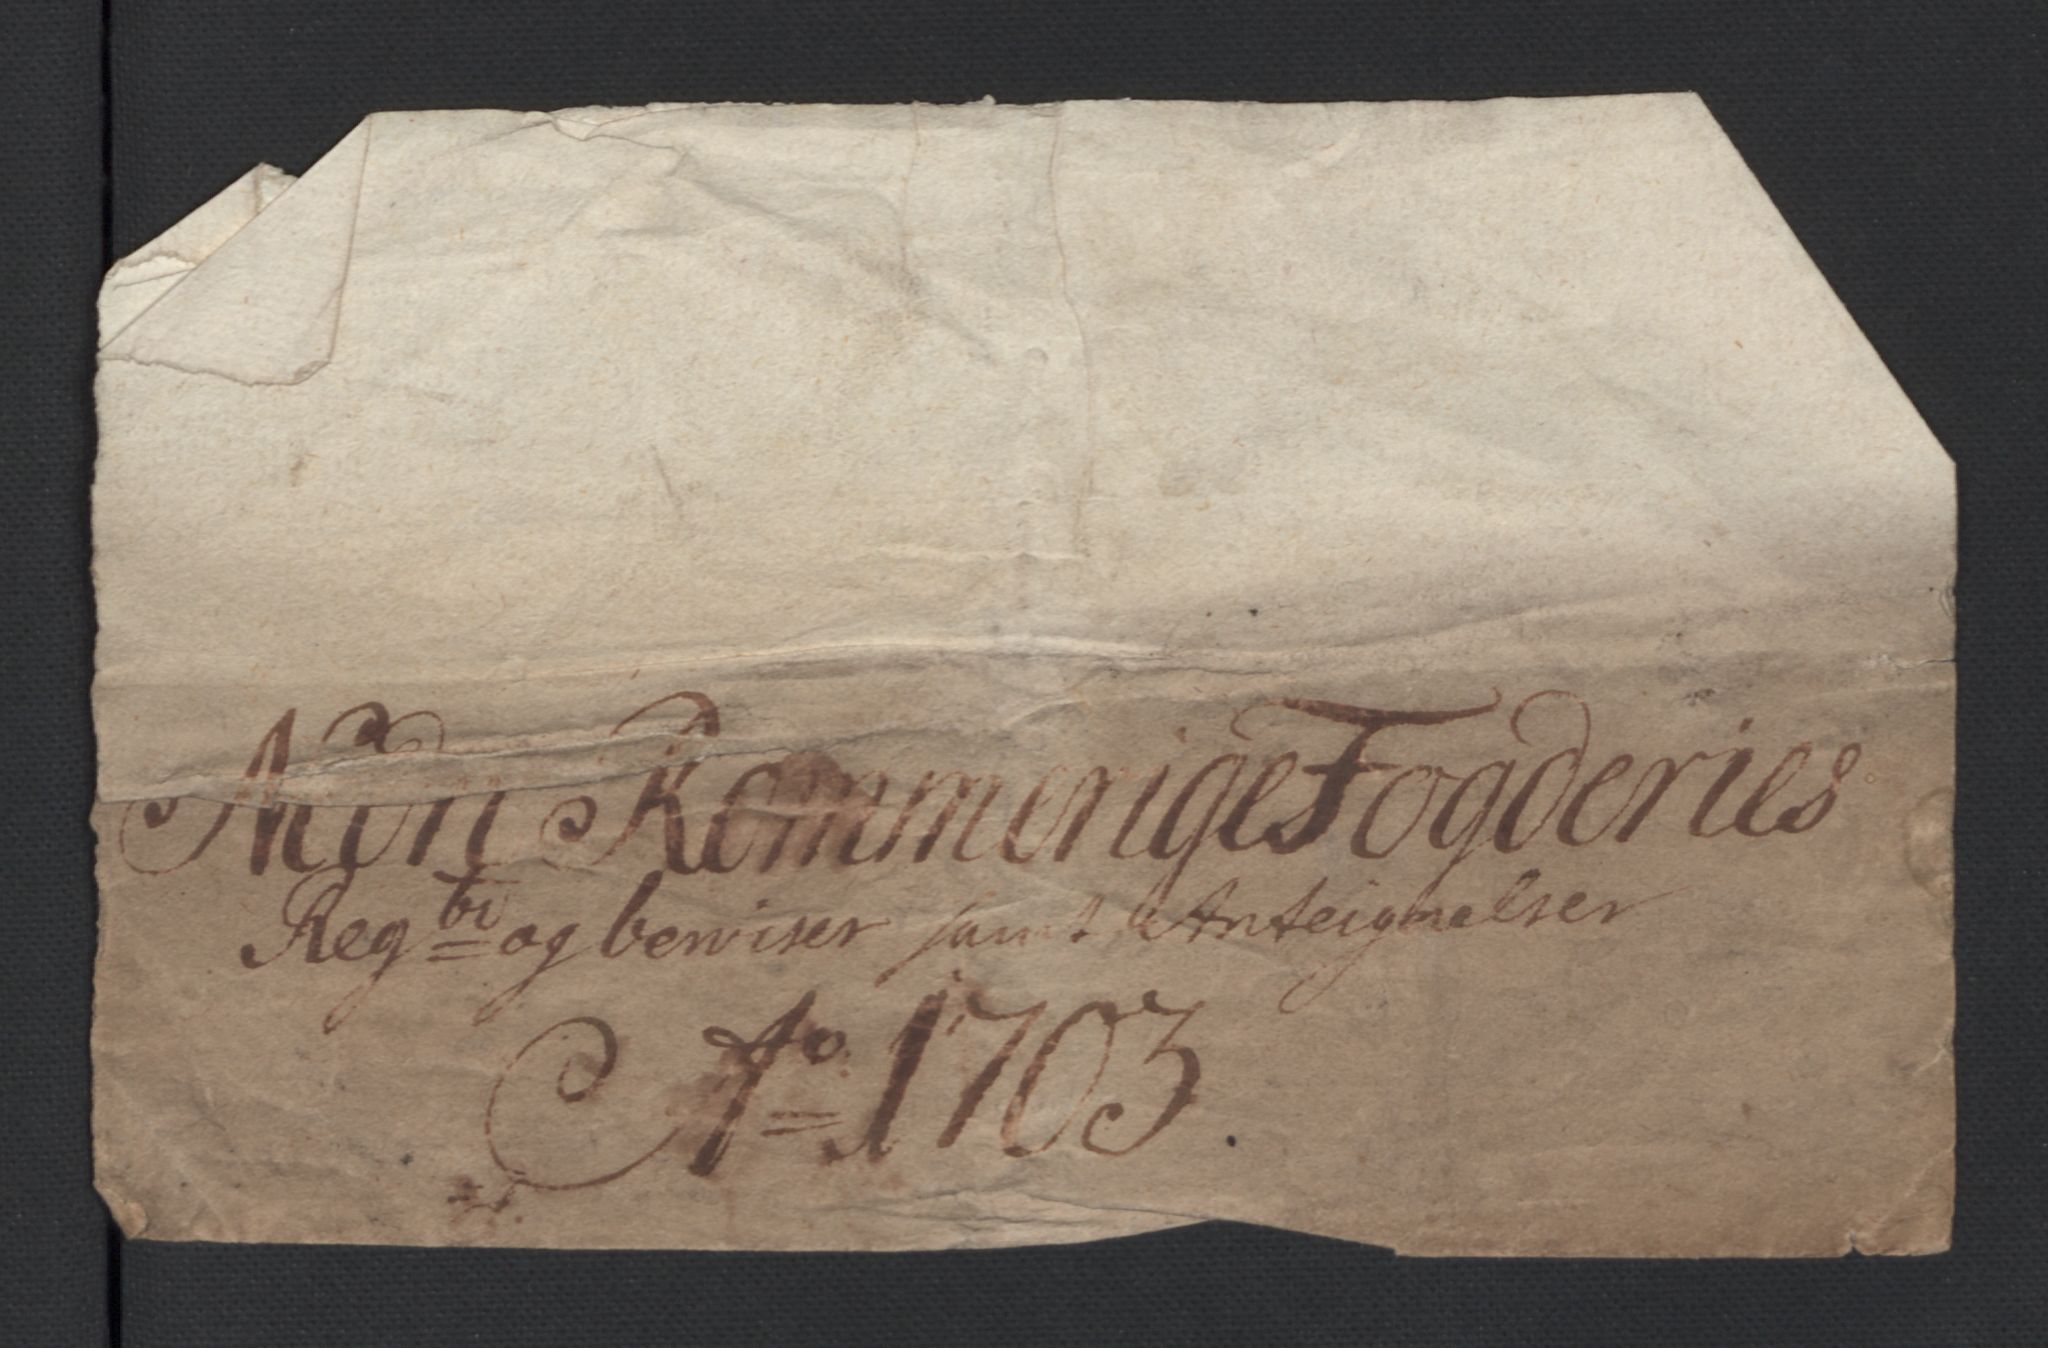 Neder Rommerige Fogderies
Reg:br og beviser samt Anteignelser
Ao 1703.